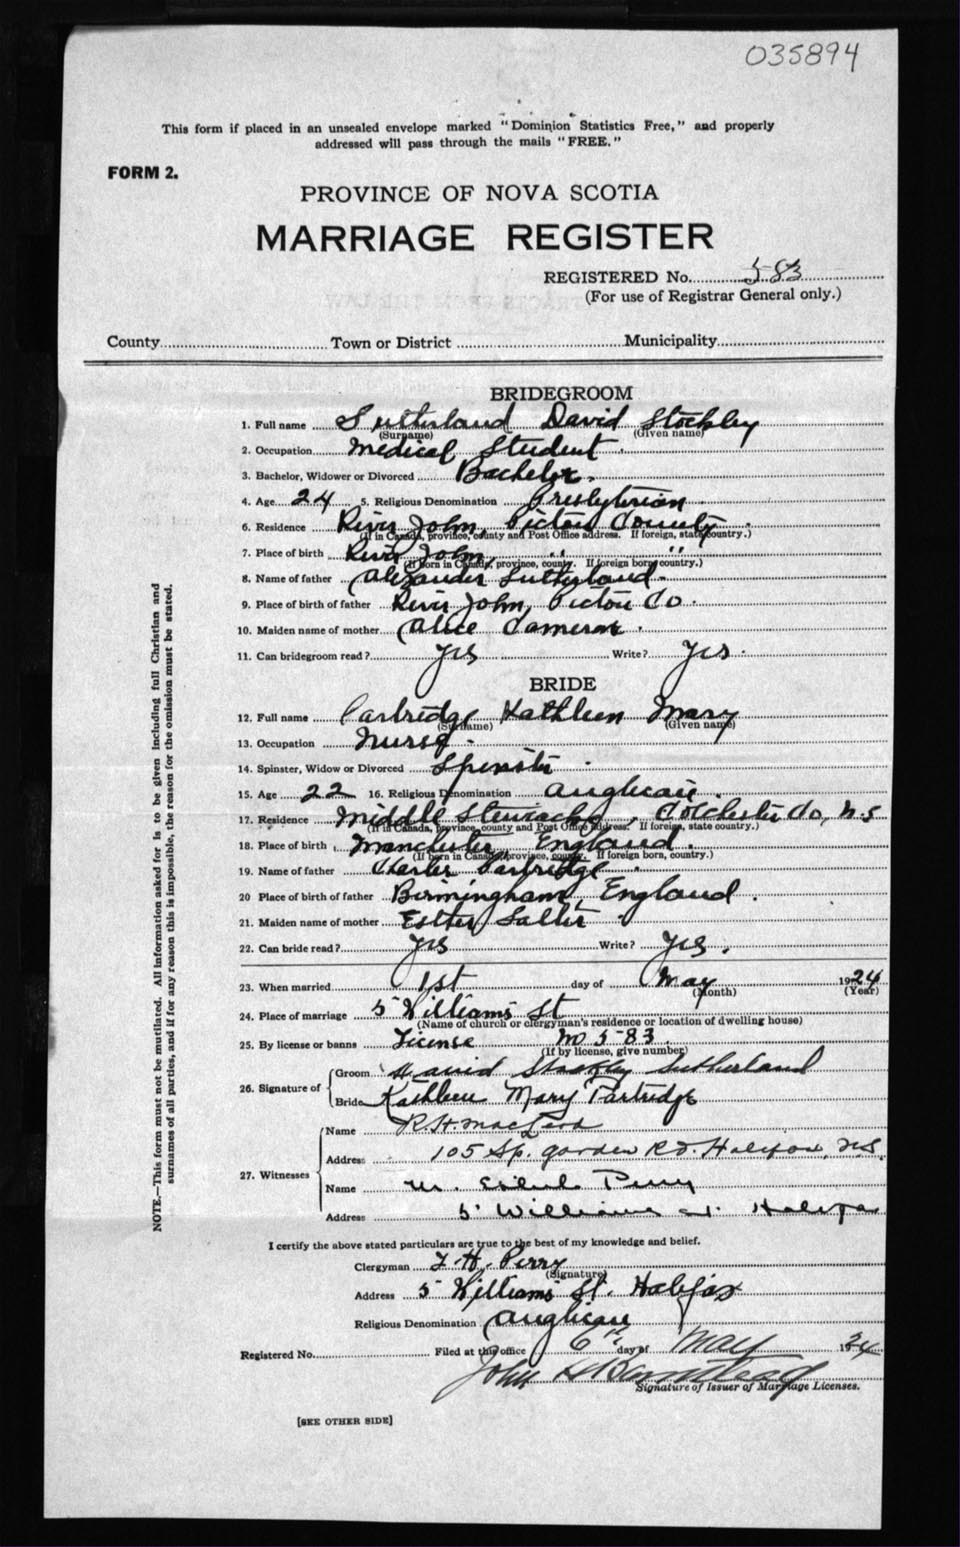 035894
This form if placed in an unsealed envelope marked "Dominion Statistics Free," and properly
addressed will pass through the mails "FREE."
FORM 2.
PROVINCE OF NOVA SCOTIA
MARRIAGE REGISTER
REGISTERED No. 583
(For use of Registrar General only.)
County Town or District Municipality
BRIDEGROOM
1. Full name Sutherland David Stockley
(Surname) (Given name)
2. Occupation Medical Student
3. Bachelor, Widower or Divorced Bachelor.
4. Age 24 5. Religious Denomination Presbyterian
6. Residence River John, Pictou County
(If in Canada, province, county and Post Office address. If foreign, state country.)
7. Place of birth River John, " "
(If born in Canada, province, county. If foreign born, country.)
8. Name of father Alexander Sutherland
9. Place of birth of father River John, Pictou Co.
10. Maiden name of mother Alice Cameron.
11. Can bridegroom read? Yes Write? Yes.
BRIDE
12. Full name Partridge Kathleen Mary
(Surname) (Given name)
13. Occupation Nurse
14. Spinster, Widow or Divorced Spinster
15. Age 22 16. Religious Denomination Anglican.
17. Residence Middle Stewiacke, Colchester Co, N.S
(If in Canada, province, county and Post Office address. If foreign, state country.)
18. Place of birth Manchester England.
(If born in Canada, province, county. If foreign born, country.)
19. Name of father Charles Partridge
20 Place of birth of father Birmingham, England.
21. Maiden name of mother Esther Salter
22. Can bride read? Yes Write? Yes.
23. When married 1st day of May 1924
(Month) (Year)
24. Place of marriage 5 Williams St
(Name of church or clergyman's residence or location of dwelling house)
25. By license or banns License No 583.
(If by license, give number)
26. Signature of Groom David Stockley Sutherland
Bride Kathleen Mary Partridge
27. Witnesses Name R. H. MacLeod
Address 105 Sp. Garden Rd. Halifax, N.S.
Name M. Perry
Address 5 Williams St. Halifax
I certify the above stated particulars are true to the best of my knowledge and belief.
Clergyman F. H. Perry
(Signature)
Address 5 Williams St. Halifax
Religious Denomination Anglican
Registered No. Filed at this office 6th day of May 1924
John H Barnstead
Signature of Issuer of Marriage Licenses.
[SEE OTHER SIDE]
NOTE.—This form must not be mutilated. All information asked for is to be given including full Christian and
surnames of all parties, and if for any reason this is impossible, the reason for the omission must be stated.